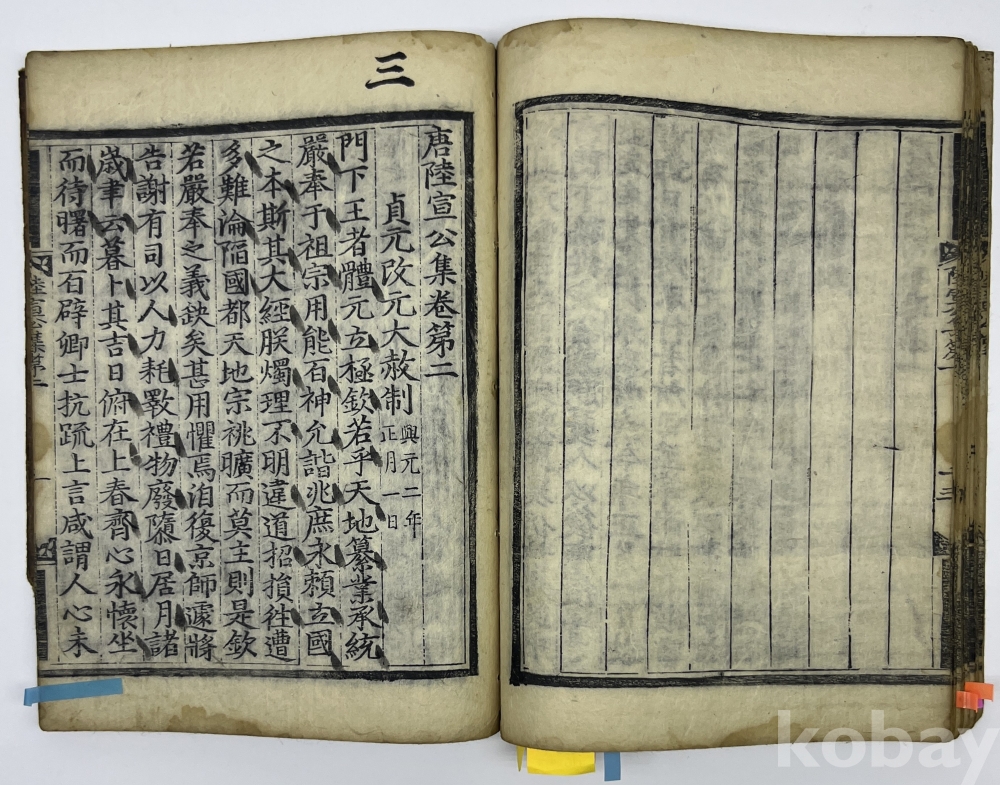 三
唐陸宣公集卷第二
貞元改元大赦制 興元二年正月一日
門下王者體元立極欽若乎天地纂業承統
嚴奉于祖宗用能百神允諧兆庶永頼立國
之本斯其大經朕燭理不明違道招損往遭
多難淪䧟國都天地宗祧曠而莫主則是欽
若嚴奉之義缺矣甚用懼焉洎復京師遽將
告謝有司以人力耗斁禮物廢隳日居月諸
歳聿云暮卜其吉日俯在上春齊心永懷坐
而待曙而百辟卿士抗䟽上言咸謂人心未
陸宣公集第二
一
kobay